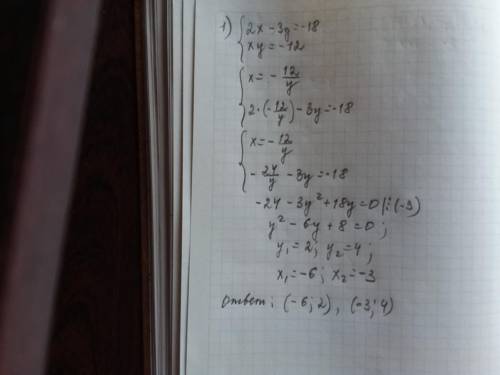 1) { 2x - 3y = -18
xy = -12
{ x = - 12/y
2·(-12/y) - 3y = -18
{ x = - 12/y
- 24/y - 3y = -18
-24 - 3y² + 18y = 0 |:(-3)
y² - 6y + 8 = 0 ;
y₁ = 2; y₂ = 4 ;
x₁ = -6 ; x₂ = -3
Ответ: (-6; 2), (-3; 4)